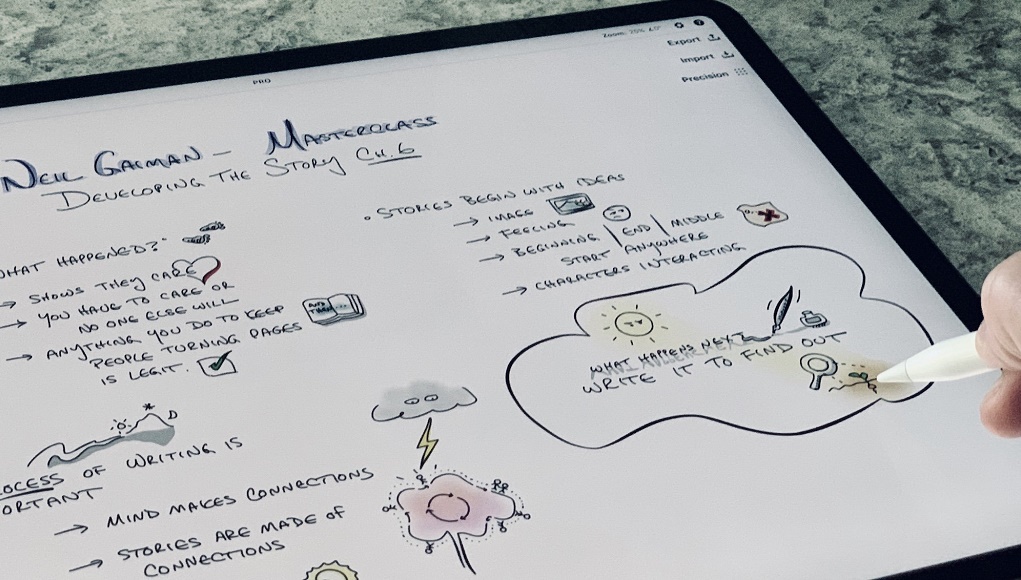 Zoom:
Export
Import
Precision
PRO
NEIL GAIMAN - MASTERCLASS
DEVELOPING THE STORY CH. 6
WHAT HAPPENED?"
→ SHOWS THEY CARE
→ YOU HAVE TO CARE OR
NO ONE ELSE WILL
→ ANYTHING YOU DO TO KEEP
PEOPLE TURNING PAGES
IS LEGIT.
OCESS OF WRITING IS
ORTANT
→ MIND MAKES CONNECTIONS
→ STORIES ARE MADE OF
CONNECTIONS
• STORIES BEGIN WITH IDEAS
→ IMAGE
→ FEELING
→ BEGINNING | END | MIDDLE
START ANYWHERE
→ CHARACTERS INTERACTING
WHAT HAPPENS NEXT
WRITE IT TO FIND OUT